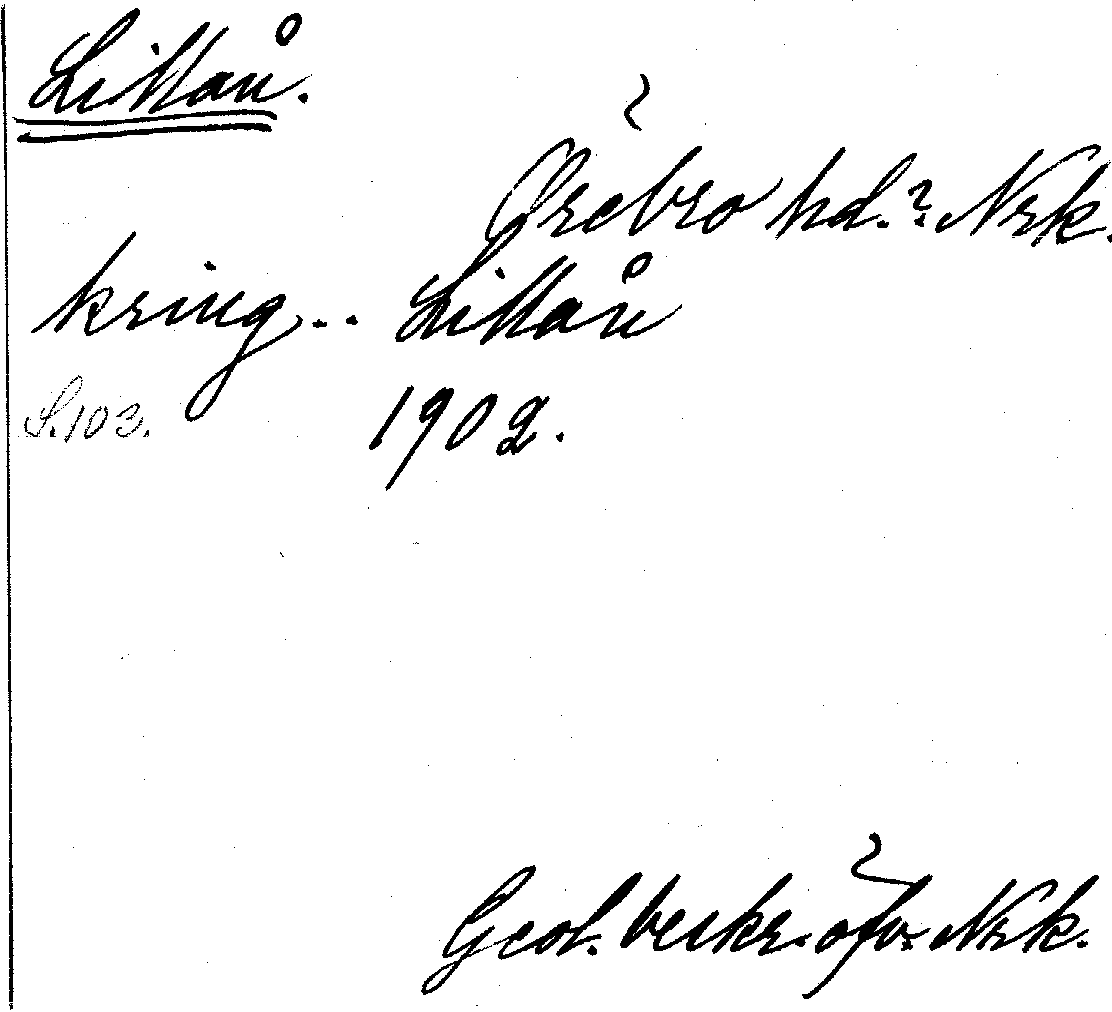 Lillån.
Örebro hd.? Nrk.
kring .. Lillån
S. 103. 1902.
Geol. beskr. öfv. Nrk.